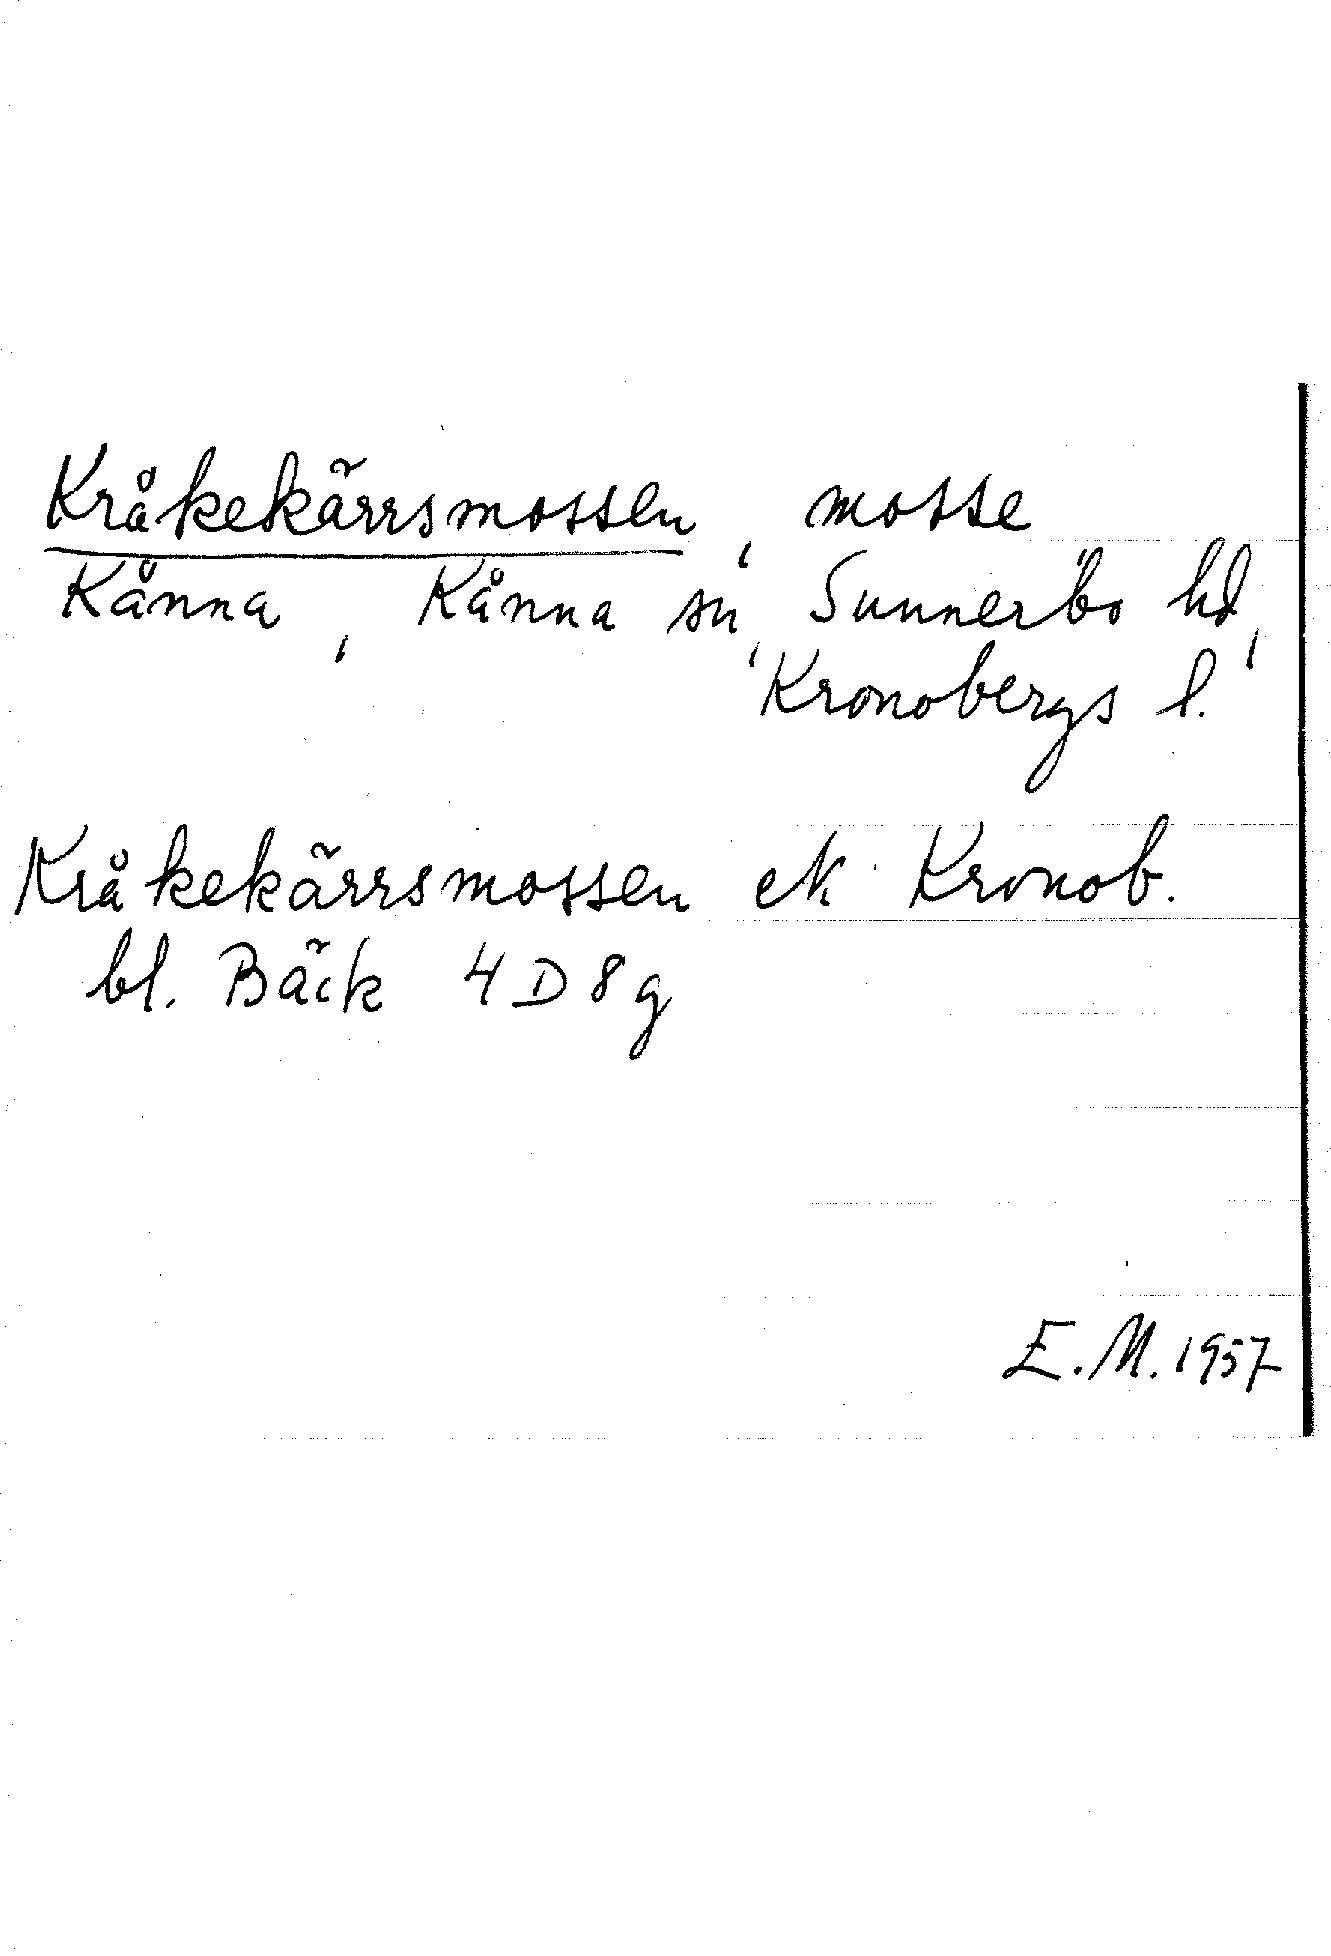 Kråkekärrsmossen, mosse
Kånna, Kånna sn, Sunnerbo hd,
Kronobergs l.
Kråkekärrsmossen ek Kronob.
bl. Bäck 4 D 8 g
E. M. 1957